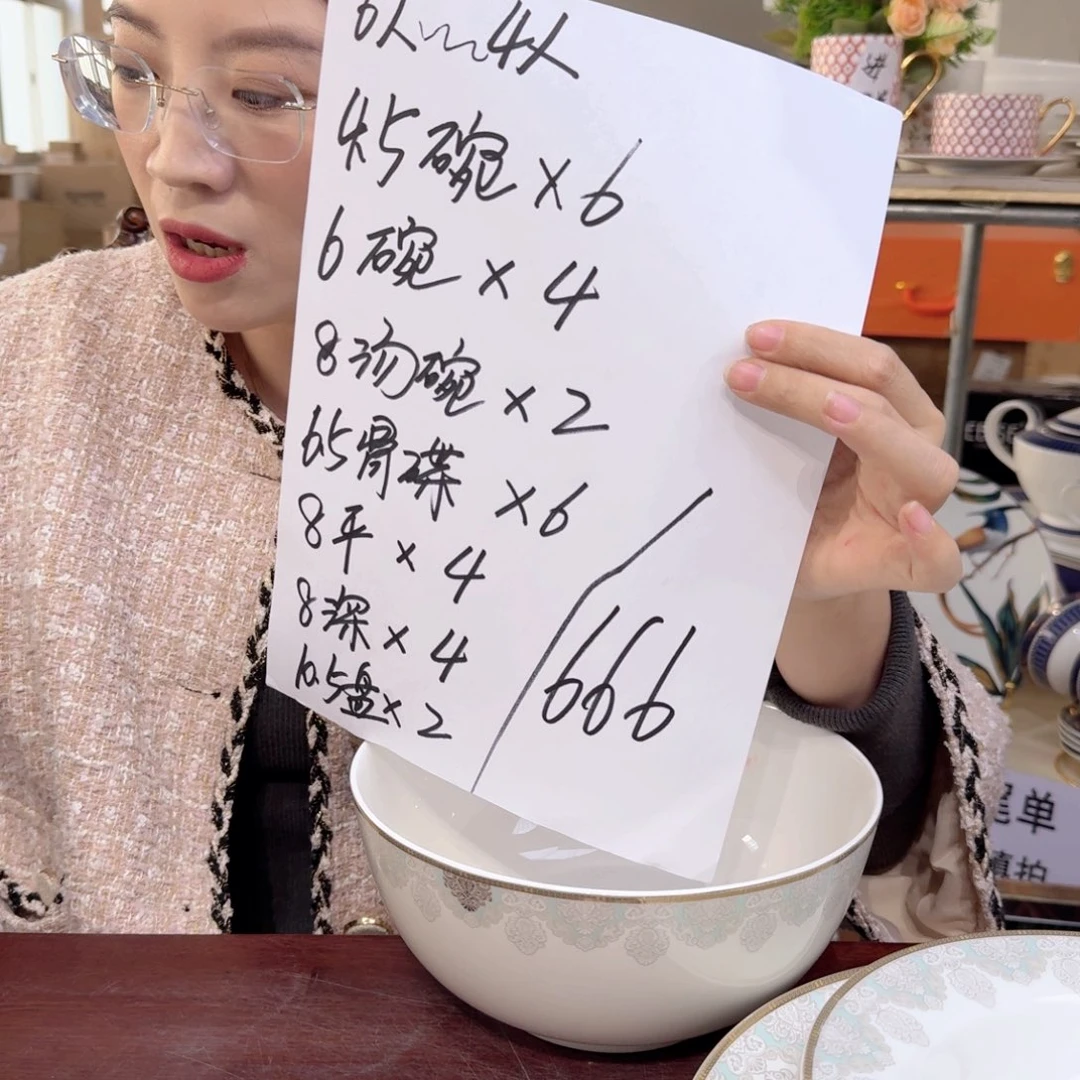 6人~4人
4.5碗×6
6碗×4
8汤碗×2
6.5骨碟×6
8平×4
8深×4
10.5盘×2
666
尾单
慎拍
进